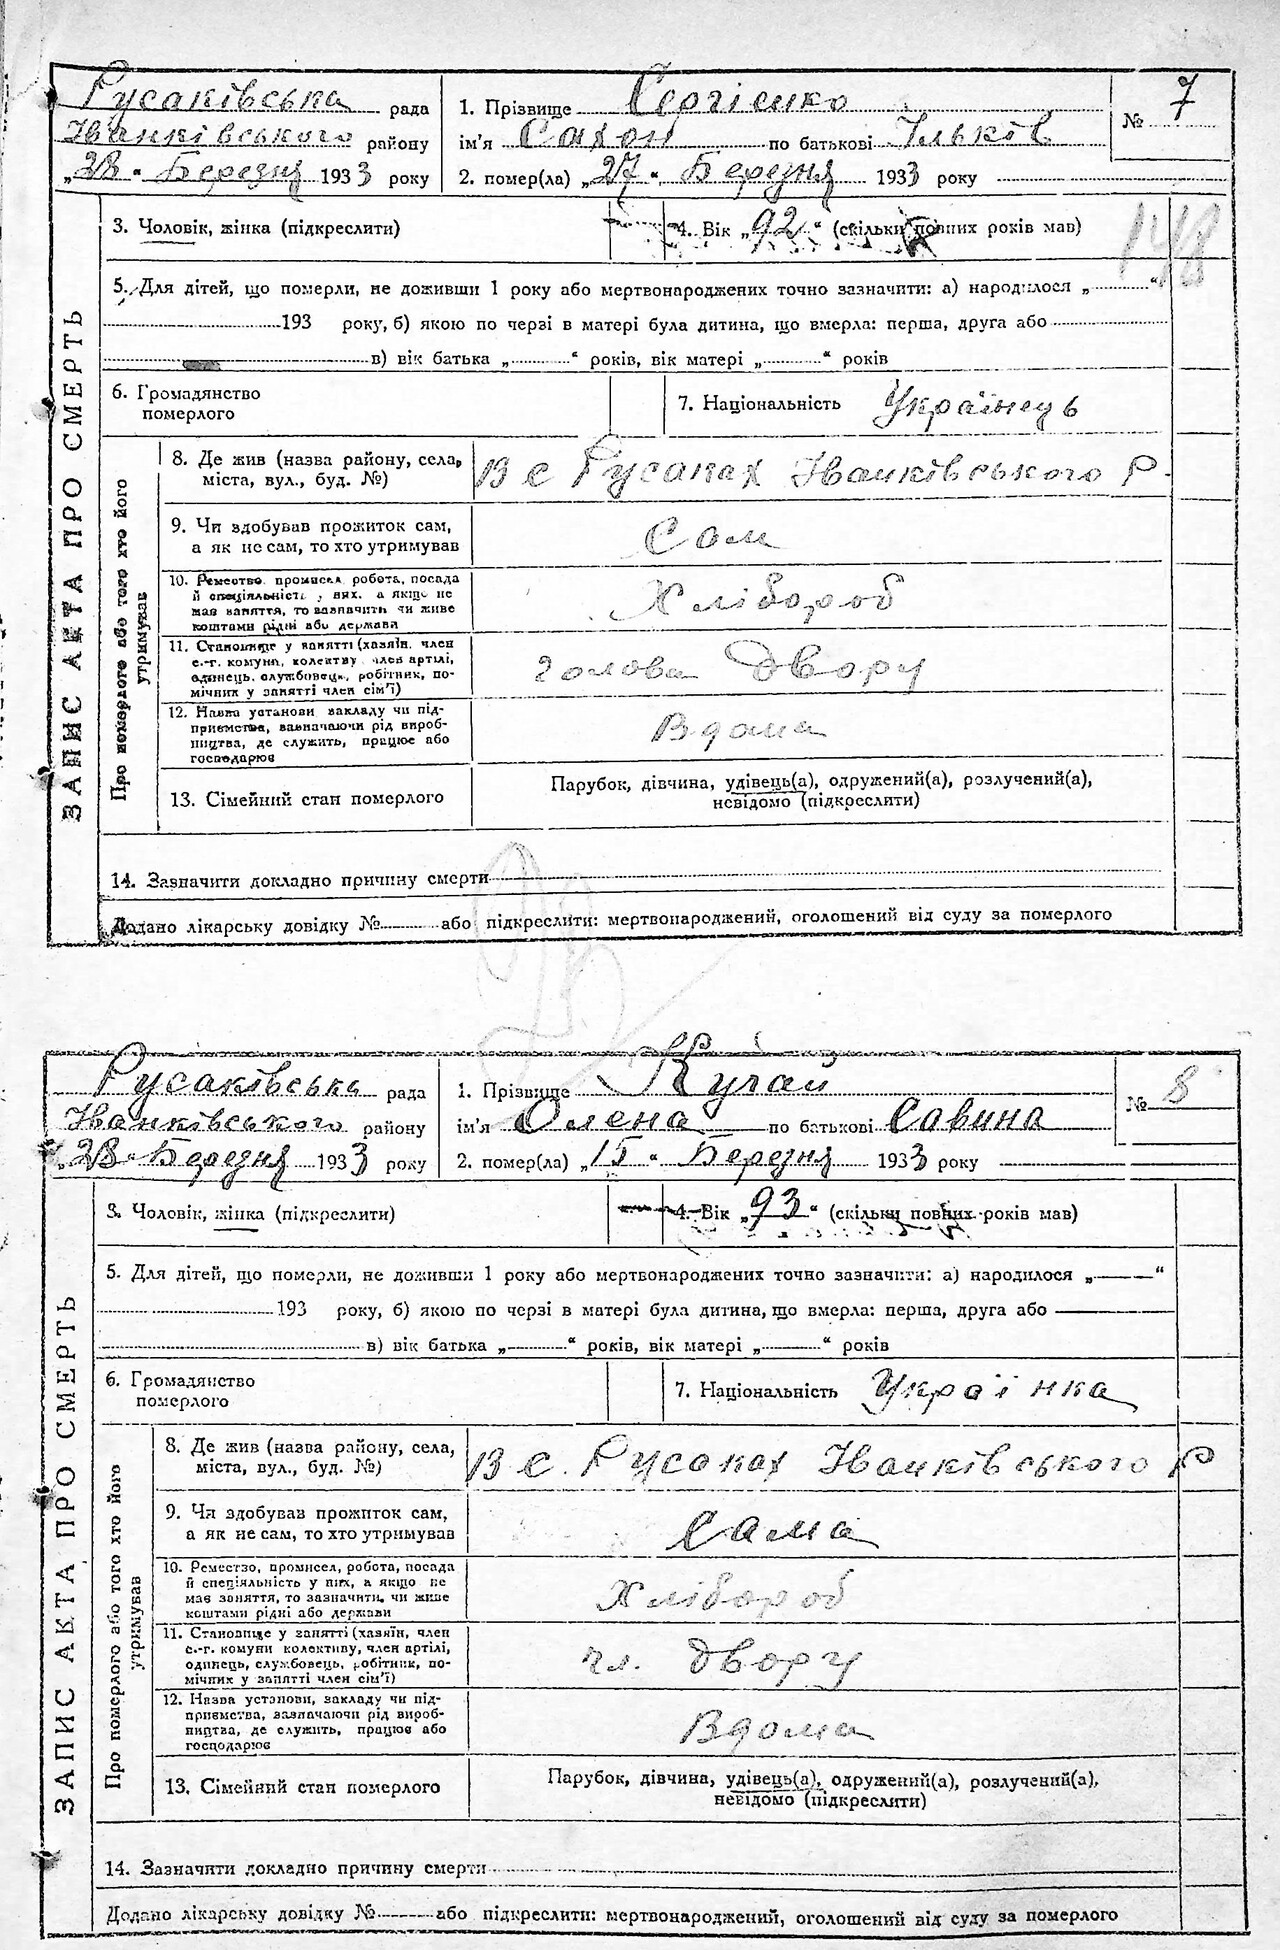 Русаківська рада
Іванківського району
„28“ Березня 1933 року
1. Прізвище Сергієнко
ім'я Сахон по батькові Ільків
2. помер(ла) „27“ Березня 1933 року
№ 7
148
3. Чоловік, жінка (підкреслити)
4. Вік „92“ (скільки повних років мав)
5. Для дітей, що померли, не доживши 1 року або мертвонароджених точно зазначити: а) народилося „ “
193 року, б) якою по черзі в матері була дитина, що вмерла: перша, друга або
в) вік батька „ “ років, вік матері „ “ років
6. Громадянство
померлого
7. Національність Українець
8. Де жив (назва району, села,
міста, вул., буд. №)
В с Русаках Іванківського Р.
9. Чи здобував прожиток сам,
а як не сам, то хто утримував
Сам
10. Ремество, промисел, робота, посада
й спеціяльність у них, а якщо не
мав заняття, то зазначить чи живе
коштами рідні або держави
Хлібороб
11. Становище у занятті (хазяїн, член
с.-г. комуни, колективу, член артілі,
одинець, службовець, робітник, по-
мічник у занятті член сім'ї)
голова Двору
12. Назва установи закладу чи під-
приємства, зазначаючи рід вироб-
ництва, де служить, працює або
господарює
Вдома
13. Сімейний стан померлого
Парубок, дівчина, удівець(а), одружений(а), розлучений(а),
невідомо (підкреслити)
14. Зазначити докладно причину смерти
Додано лікарську довідку № або підкреслити: мертвонароджений, оголошений від суду за померлого
ЗАПИС АКТА ПРО СМЕРТЬ
Про померлого або того хто його
утримував
Русаківська рада
Іванківського району
„28“ Березня 1933 року
1. Прізвище Кучай
ім'я Олена по батькові Савина
2. помер(ла) „15“ Березня 1933 року
№ 8
3. Чоловік, жінка (підкреслити)
4. Вік „93“ (скільки повних років мав)
5. Для дітей, що померли, не доживши 1 року або мертвонароджених точно зазначити: а) народилося „ “
193 року, б) якою по черзі в матері була дитина, що вмерла: перша, друга або
в) вік батька „ “ років, вік матері „ “ років
6. Громадянство
померлого
7. Національність Українка
8. Де жив (назва району, села,
міста, вул., буд. №)
В с. Русаках Іванківського Р
9. Чи здобував прожиток сам,
а як не сам, то хто утримував
Сама
10. Ремество, промисел, робота, посада
й спеціяльність у них, а якщо не
має заняття, то зазначити, чи живе
коштами рідні або держави
Хлібороб
11. Становище у занятті (хазяїн, член
с.-г. комуни колективу, член артілі,
одинець, службовець, робітник, по-
мічник у занятті член сім'ї)
чл. двору
12. Назва установи, закладу чи під-
приємства, зазначаючи рід вироб-
ництва, де служить, працює або
господарює
Вдома
13. Сімейний стан померлого
Парубок, дівчина, удівець(а), одружений(а), розлучений(а),
невідомо (підкреслити)
14. Зазначити докладно причину смерти
Додано лікарську довідку № або підкреслити: мертвонароджений, оголошений від суду за померлого
ЗАПИС АКТА ПРО СМЕРТЬ
Про померлого або того хто його
утримував